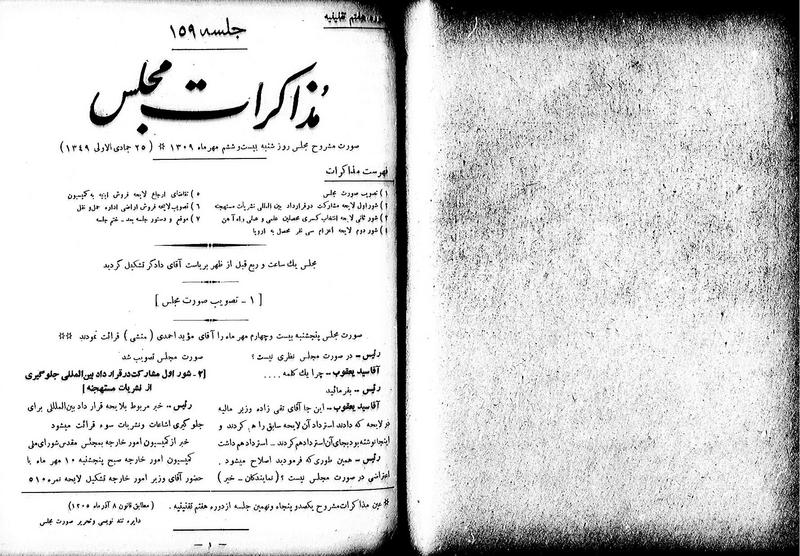 دوره هفتم تقنینیه
جلسه ۱۵۹
مذاکرات مجلس
صورت مشروح مجلس روز شنبه بیست و ششم مهر ماه ۱۳۰۹ * (۲۵ جمادی الاولی ۱۳۴۹)
فهرست مذاکرات
۱) تصویب صورت مجلس
۲) شور اول لایحه مشارکت در قرارداد بین المللی نشریات مستهجنه
۳) شور ثانی لایحه انتخاب کسری محصلین علمی و عملی راه آهن
۴) شور دوم لایحه اعزام سی نفر محصل به اروپا
۵) تقاضای ارجاع لایحه فروش ابنیه به کمیسیون
۶) تصویب لایحه فروش اراضی اداره حمل و نقل
۷) موقع و دستور جلسه بعد - ختم جلسه
مجلس یک ساعت و ربع قبل از ظهر بریاست آقای دادگر تشکیل گردید
[۱ - تصویب صورت مجلس]
صورت مجلس پنجشنبه بیست و چهارم مهر ماه را آقای مؤید احمدی (منشی) قرائت نمودند **
رئیس - در صورت مجلس نظری نیست؟
آقا سید یعقوب - چرا یک کلمه ....
رئیس - بفرمائید
آقا سید یعقوب - این جا آقای تقی زاده وزیر مالیه
در لایحه که دادند استرداد آن لایحه سابق را هم کردند و
اینجا نوشته بود بجای آن استرداد هم کردند - استرداد هم داشت
رئیس - همین طوری که فرمودید اصلاح میشود.
اعتراضی در صورت مجلس نیست؟ (نمایندگان - خیر)
صورت مجلس تصویب شد
[۲ - شور اول مشارکت در قرارداد بین المللی جلوگیری
از نشریات مستهجنه]
رئیس - خبر مربوط بلایحه قرارداد بین المللی برای
جلوگیری اشاعات و نشریات سوء قرائت میشود
خبر از کمیسیون امور خارجه بمجلس مقدس شورای ملی
کمیسیون امور خارجه صبح پنجشنبه ۱۰ مهر ماه با
حضور آقای وزیر امور خارجه تشکیل لایحه نمره ۵۱۰
* عین مذاکرات مشروح یکصد و پنجاه و نهمین جلسه از دوره هفتم تقنینیه. (مطابق قانون ۸ آذر ماه ۱۳۰۵)
دایره تند نویسی و تحریر صورت مجلس
- ۱ -